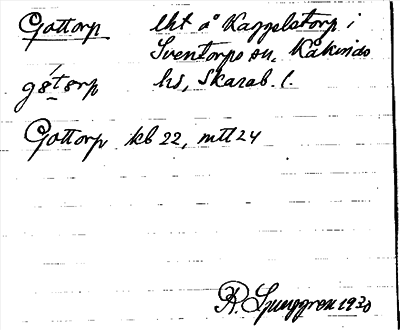 Gottorp lht å Kappelstorp i
Sventorps sn, Kåkinds
hs, Skarab. l.
Gottorp kb 22, mtl 24
K. Ljunggren 1930